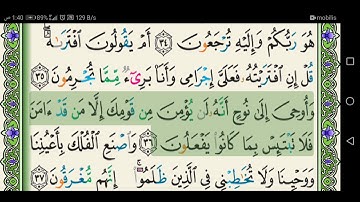 1:40 ص 89% 129 B/s mobilis
هُوَ رَبُّكُمْ وَإِلَيْهِ تُرْجَعُونَ ٣٤ أَمْ يَقُولُونَ ٱفْتَرَىٰهُ ۖ
قُلْ إِنِ ٱفْتَرَيْتُهُۥ فَعَلَىَّ إِجْرَامِى وَأَنَا۠ بَرِىٓءٌ مِّمَّا تُجْرِمُونَ ٣٥
وَأُوحِىَ إِلَىٰ نُوحٍ أَنَّهُۥ لَن يُؤْمِنَ مِن قَوْمِكَ إِلَّا مَن قَدْ ءَامَنَ
فَلَا تَبْتَئِسْ بِمَا كَانُوا۟ يَفْعَلُونَ ٣٦ وَٱصْنَعِ ٱلْفُلْكَ بِأَعْيُنِنَا
وَوَحْيِنَا وَلَا تُخَٰطِبْنِى فِى ٱلَّذِينَ ظَلَمُوٓا۟ ۚ إِنَّهُم مُّغْرَقُونَ ٣٧